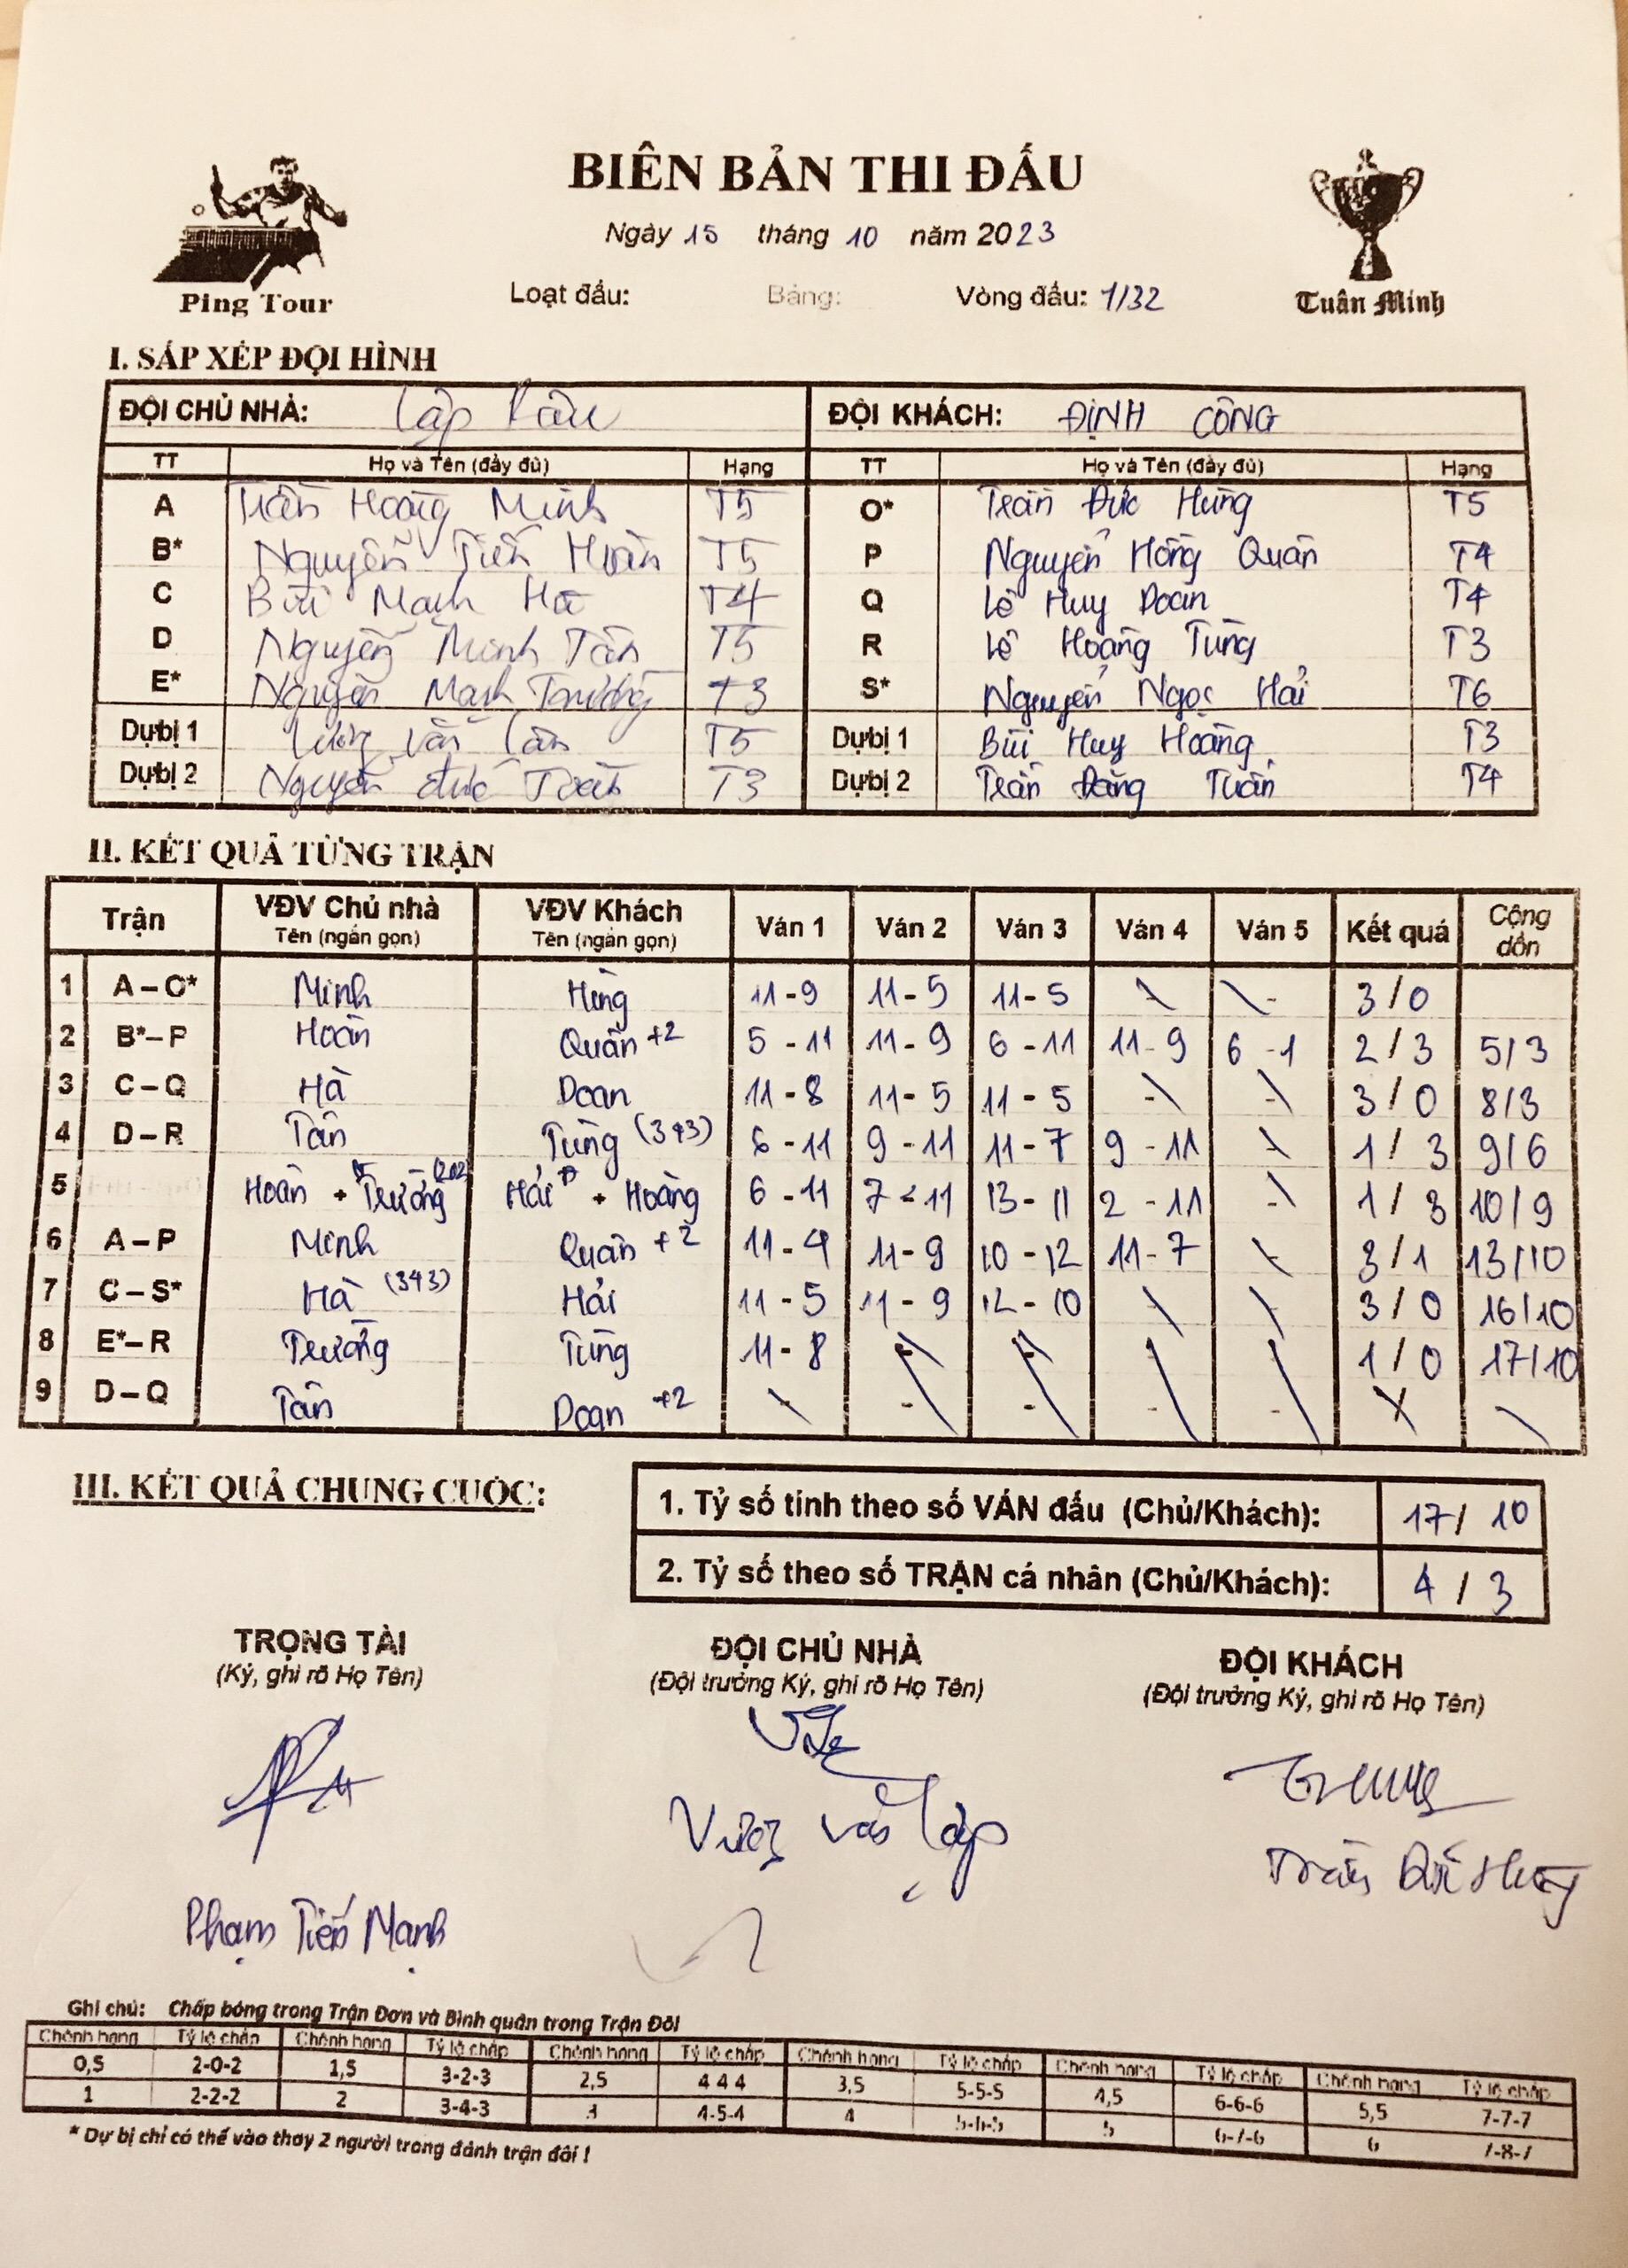 BIÊN BẢN THI ĐẤU
Ngày 15 tháng 10 năm 2023
Ping Tour
Loạt đấu: Bảng: Vòng đấu: 1/32
Tuân Minh
I. SẮP XẾP ĐỘI HÌNH
ĐỘI CHỦ NHÀ: Lập ĐỘI KHÁCH: ĐỊNH CÔNG
TT Họ và Tên (đầy đủ) Hạng TT Họ và Tên (đầy đủ) Hạng
A Trần Hoàng Minh T5 O* Trần Đức Hùng T5
B* Nguyễn Tiến Hoàn T5 P Nguyễn Hồng Quân T4
C Bùi Mạnh Hà T4 Q Lê Huy Doan T4
D Nguyễn Minh Tân T5 R Lê Hoàng Tùng T3
E* Nguyễn Mạnh Trường T3 S* Nguyễn Ngọc Hải T6
Dự bị 1 văn T5 Dự bị 1 Bùi Huy Hoàng T3
Dự bị 2 Nguyễn đức T3 Dự bị 2 Trần Đăng Tuấn T4
II. KẾT QUẢ TỪNG TRẬN
Trận VĐV Chủ nhà VĐV Khách Ván 1 Ván 2 Ván 3 Ván 4 Ván 5 Kết quả Cộng dồn
Tên (ngắn gọn) Tên (ngắn gọn)
1 A – O* Minh Hùng 11-9 11-5 11-5 3/0
2 B*– P Hoàn Quân +2 5-11 11-9 6-11 11-9 6-1 2/3 5/3
3 C – Q Hà Doan 11-8 11-5 11-5 3/0 8/3
4 D – R Tân Tùng (343) 6-11 9-11 11-7 9-11 1/3 9/6
5 Hoàn + Trường (202) Hải + Hoàng 6-11 7-11 13-11 2-11 1/3 10/9
6 A – P Minh Quân +2 11-4 11-9 10-12 11-7 3/1 13/10
7 C – S* Hà (343) Hải 11-5 11-9 12-10 3/0 16/10
8 E*– R Trường Tùng 11-8 1/0 17/10
9 D – Q Tân Doan +2
III. KẾT QUẢ CHUNG CUỘC:
1. Tỷ số tính theo số VÁN đấu (Chủ/Khách): 17/10
2. Tỷ số theo số TRẬN cá nhân (Chủ/Khách): 4/3
TRỌNG TÀI ĐỘI CHỦ NHÀ ĐỘI KHÁCH
(Ký, ghi rõ Họ Tên) (Đội trưởng Ký, ghi rõ Họ Tên) (Đội trưởng Ký, ghi rõ Họ Tên)
văn Lập
Trần Đức Hùng
Phạm Tiến Mạnh
Ghi chú: Chấp bóng trong Trận Đơn và Bình quân trong Trận Đôi
Chênh hạng Tỷ lệ chấp Chênh hạng Tỷ lệ chấp Chênh hạng Tỷ lệ chấp Chênh hạng Tỷ lệ chấp Chênh hạng Tỷ lệ chấp Chênh hạng Tỷ lệ chấp
0,5 2-0-2 1,5 3-2-3 2,5 4-4-4 3,5 5-5-5 4,5 6-6-6 5,5 7-7-7
1 2-2-2 2 3-4-3 3 4-5-4 4 5-6-5 5 6-7-6 6 7-8-7
* Dự bị chỉ có thể vào thay 2 người trong đánh trận đôi !